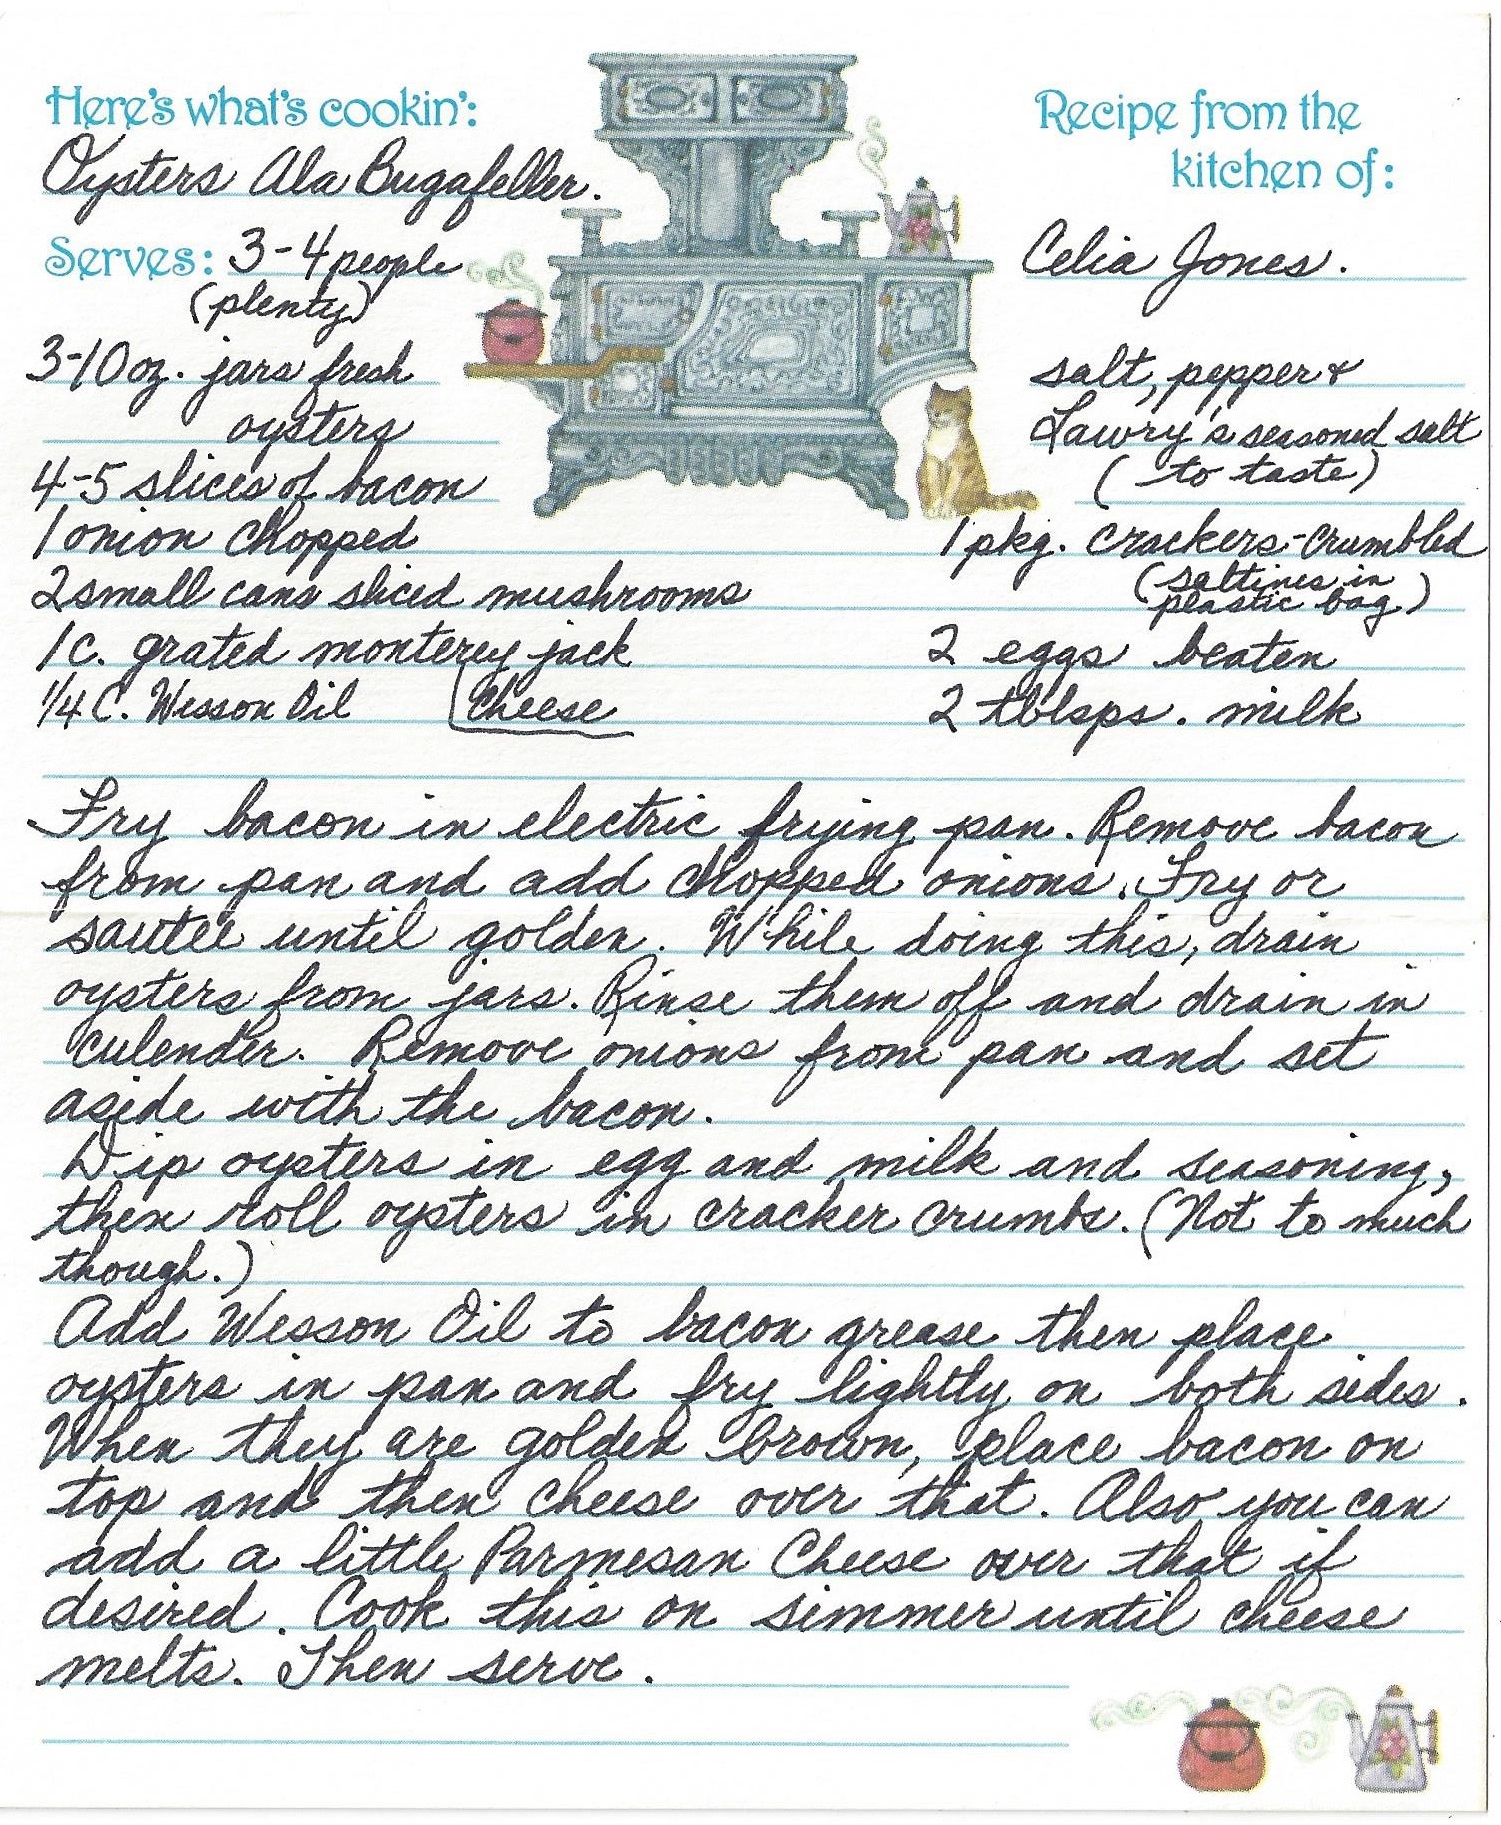 Here's what's cookin':
Oysters Ala Bugafeller.
Serves: 3-4 people
(plenty)
Recipe from the
kitchen of:
Celia Jones.
3-10 oz. jars fresh
oysters
4-5 slices of bacon
1 onion chopped
2 small cans sliced mushrooms
1 c. grated monterey jack
cheese
1/4 C. Wesson Oil
salt, pepper &
Lawry's seasoned salt
(to taste)
1 pkg. crackers-crumbled
(saltines in
plastic bag)
2 eggs beaten
2 tblsps. milk
Fry bacon in electric frying pan. Remove bacon
from pan and add chopped onions. Fry or
sautee until golden. While doing this, drain
oysters from jars. Rinse them off and drain in
culender. Remove onions from pan and set
aside with the bacon.
Dip oysters in egg and milk and seasoning,
then roll oysters in cracker crumbs. (Not to much
though.)
Add Wesson Oil to bacon grease then place
oysters in pan and fry lightly on both sides.
When they are golden brown, place bacon on
top and then cheese over that. Also you can
add a little Parmesan Cheese over that if
desired. Cook this on simmer until cheese
melts. Then serve.